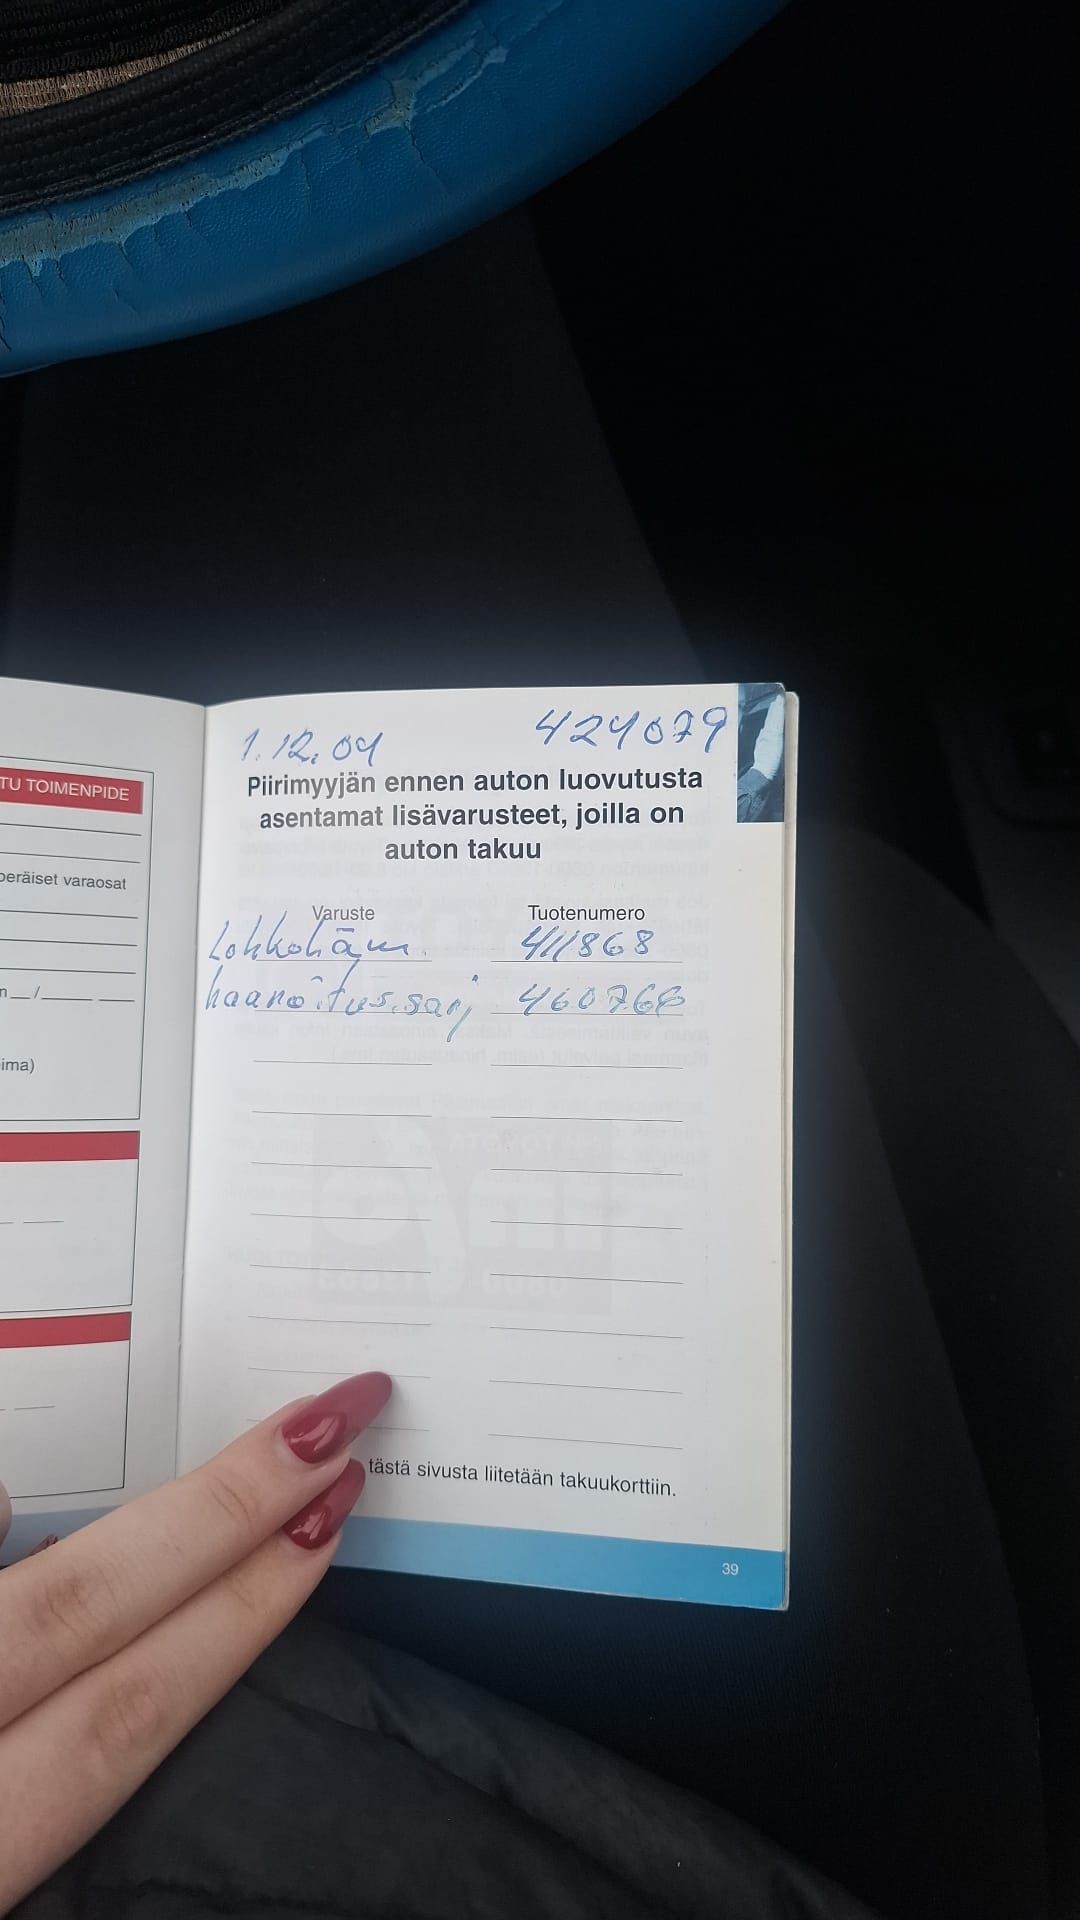 TU TOIMENPIDE
peräiset varaosat
ima)
1.12.04
424079
Piirimyyjän ennen auton luovutusta
asentamat lisävarusteet, joilla on
auton takuu
Varuste Tuotenumero
Lohkoläm. 411868
haaroitus.sarj 460768
tästä sivusta liitetään takuukorttiin.
39